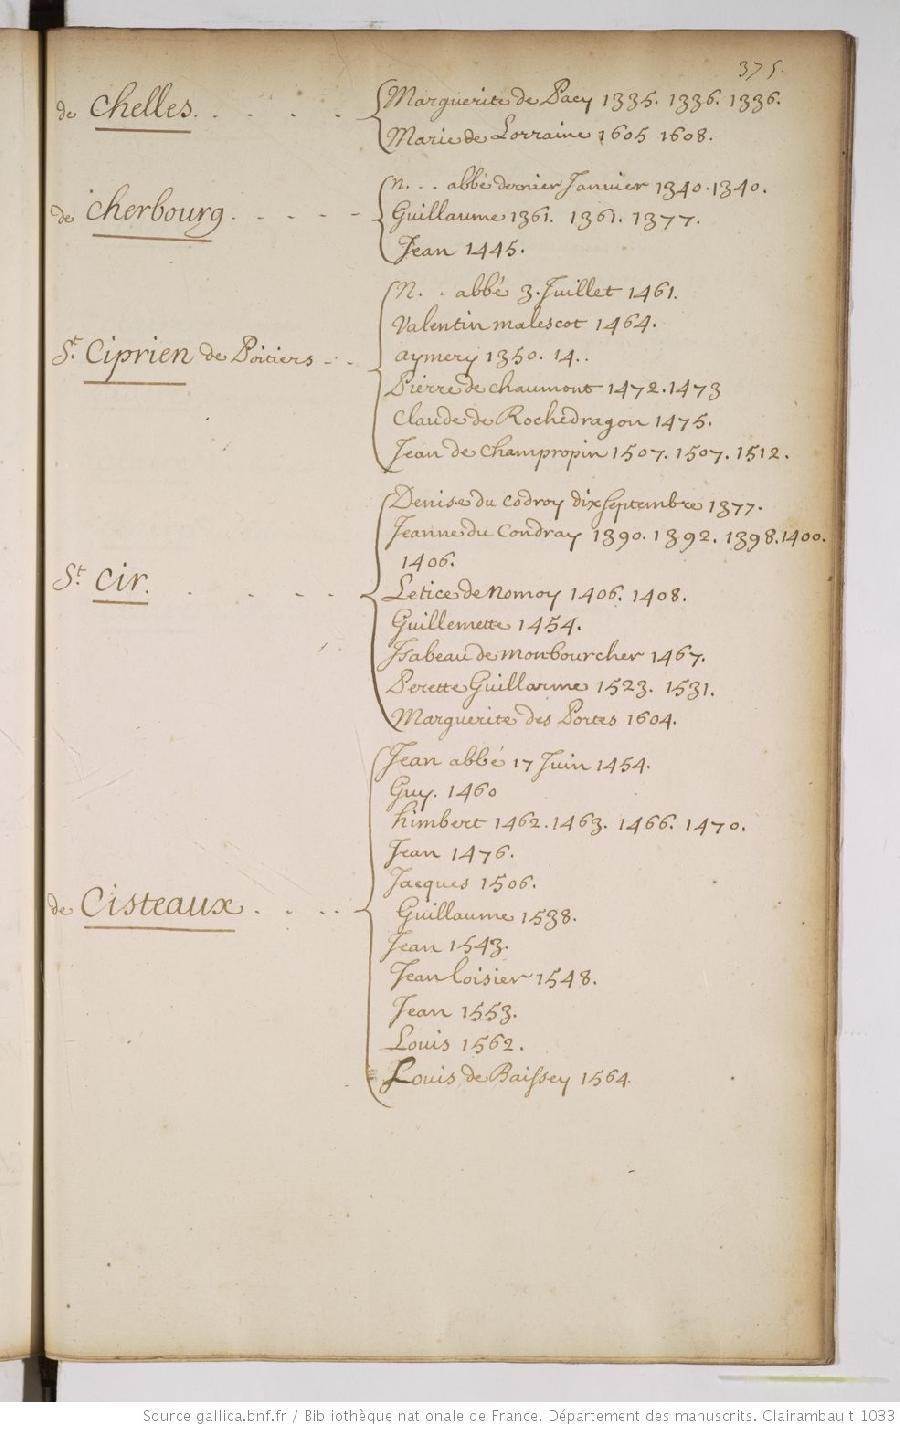 375.
de Chelles. . . . . .
Marguerite de Pacy 1335. 1336. 1336.
Marie de Lorraine 1605 1608.
de Cherbourg. . - - - -
N. . . abbé dernier Janvier 1340. 1340.
Guillaume 1361. 1361. 1377.
Jean 1445.
St. Ciprien de Poitiers - - .
N. . . abbé 3. Juillet 1461.
Valentin malescot 1464.
aymery 1350. 14..
Pierre de chaumont 1472. 1473
Claude de Rochedragon 1475.
Jean de Champropin 1507. 1507. 1512.
St. Cir. . . - -
Denise du Codroy dix septembre 1377.
Jeanne du Condray 1390. 1392. 1398. 1400.
1406.
Letice de Nomoy 1406. 1408.
Guillemette 1454.
Isabeau de Monbourcher 1467.
Perette Guillarme 1523. 1531.
Marguerite des Portes 1604.
de Cisteaux . . . .
Jean abbé 17 Juin 1454.
Guy. 1460
himbert 1462. 1463. 1466. 1470.
Jean 1476.
Jacques 1506.
Guillaume 1538.
Jean 1543.
Jean loisier 1548.
Jean 1553.
Louis 1562.
Louis de Baissey 1564.
Source gallica.bnf.fr / Bibliothèque nationale de France. Département des manuscrits. Clairambault 1033